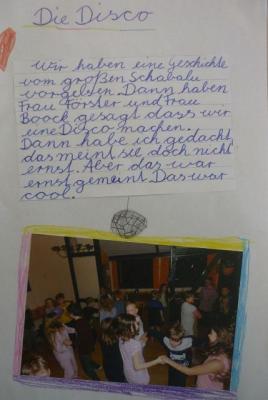 Die Disco
Wir haben eine Geschichte
vom großen Schabalu
vorgelsen. Dann haben
Frau Förster und Frau
Boock gesagt dass wir
eine Disco machen.
Dann habe ich gedacht,
das meint sie doch nicht
ernst. Aber das war
ernst gemeint. Das war
cool.